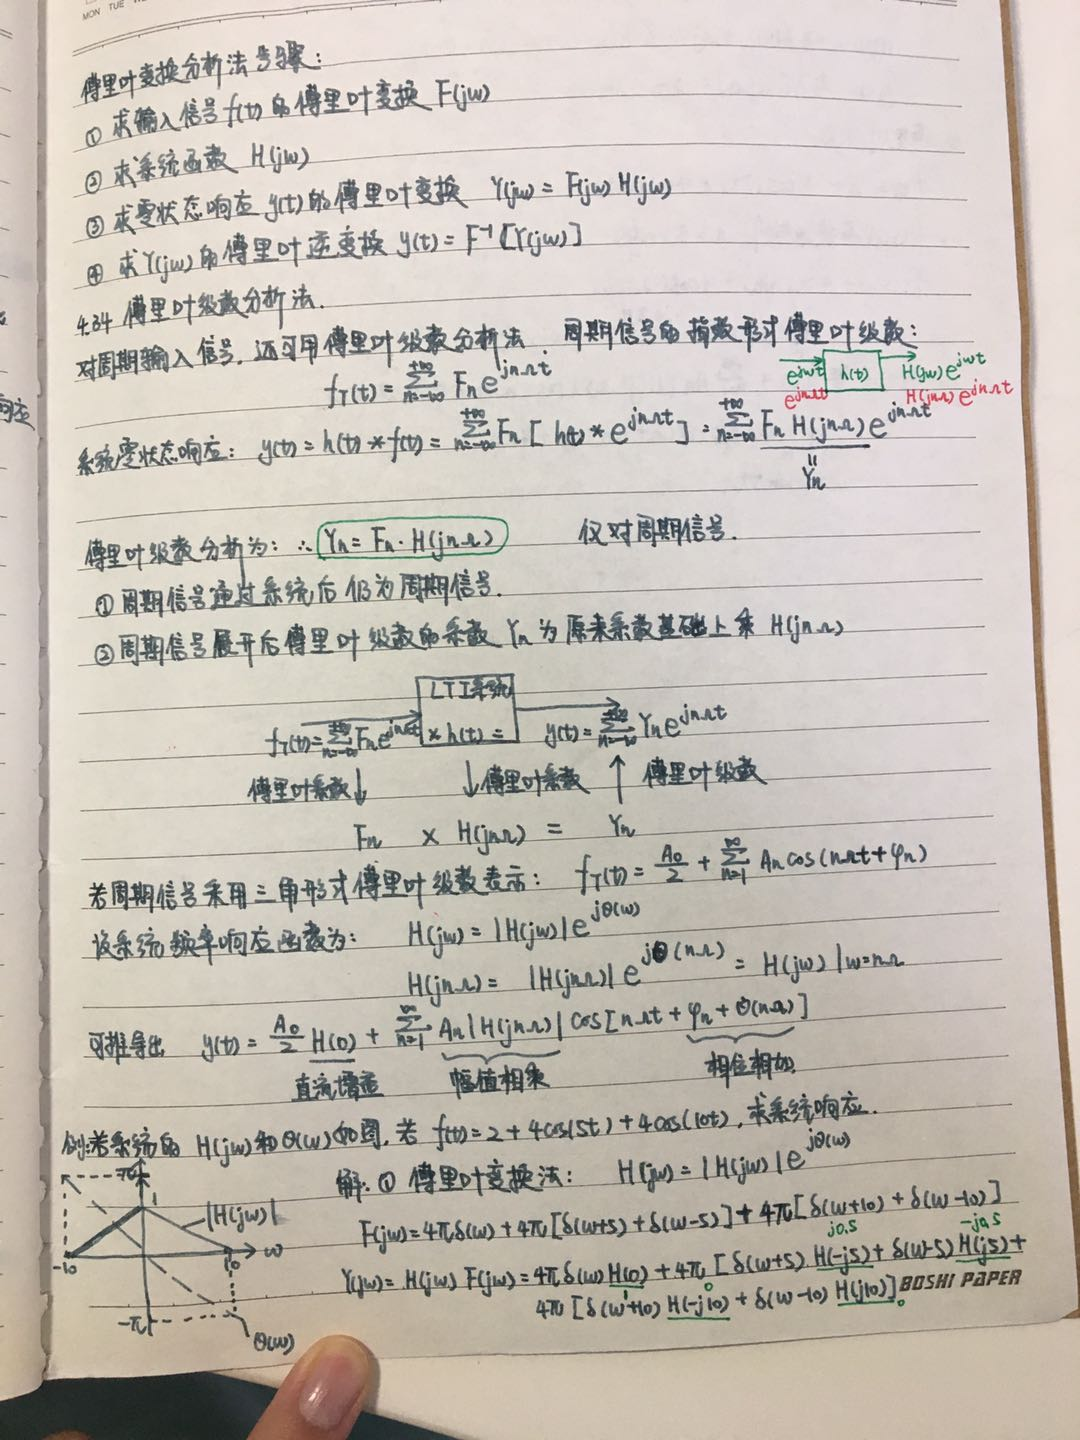 MON TUE
傅里叶变换分析法步骤:
① 求输入信号f(t)的傅里叶变换 F(jω)
② 求系统函数 H(jω)
③ 求零状态响应 y(t)的傅里叶变换 Y(jω) = F(jω) H(jω)
④ 求Y(jω)的傅里叶逆变换 y(t) = F⁻¹[Y(jω)]
4.34 傅里叶级数分析法.
对周期输入信号,还可用傅里叶级数分析法 周期信号的指数形式傅里叶级数:
f_T(t) = Σ_{n=-∞}^{+∞} F_n e^{jnΩt}
e^{jωt} h(t) H(jω)e^{jωt}
e^{jnΩt} H(jnΩ)e^{jnΩt}
系统零状态响应: y(t) = h(t)*f(t) = Σ_{n=-∞}^{+∞} F_n [h(t)*e^{jnΩt}] = Σ_{n=-∞}^{+∞} F_n H(jnΩ) e^{jnΩt}
=
Y_n
傅里叶级数分析为: ∴ Y_n = F_n · H(jnΩ) 仅对周期信号.
① 周期信号通过系统后仍为周期信号.
② 周期信号展开后傅里叶级数的系数 Y_n 为原来系数基础上乘 H(jnΩ)
LTI系统
f_T(t) = Σ_{n=-∞}^{+∞} F_n e^{jnΩt} * h(t) = y(t) = Σ_{n=-∞}^{+∞} Y_n e^{jnΩt}
傅里叶系数↓ ↓傅里叶系数 ↑ 傅里叶级数
F_n × H(jnΩ) = Y_n
若周期信号采用三角形式傅里叶级数表示: f_T(t) = A₀/2 + Σ_{n=1}^{∞} A_n cos(nΩt + φ_n)
该系统频率响应函数为: H(jω) = |H(jω)| e^{jθ(ω)}
H(jnΩ) = |H(jnΩ)| e^{jθ(nΩ)} = H(jω)|ω=nΩ
可推导出 y(t) = A₀/2 H(0) + Σ_{n=1}^{∞} A_n|H(jnΩ)| cos[nΩt + φ_n + θ(nΩ)]
直流增益 幅值相乘 相位相加.
例:若系统的 H(jω)和θ(ω)如图,若 f(t) = 2 + 4cos(5t) + 4cos(10t),求系统响应.
解: ① 傅里叶变换法: H(jω) = |H(jω)| e^{jθ(ω)}
π
1
|H(jω)|
-10
10
ω
-π
θ(ω)
F(jω) = 4πδ(ω) + 4π[δ(ω+5) + δ(ω-5)] + 4π[δ(ω+10) + δ(ω-10)]
j0.5 -j0.5
Y(jω) = H(jω) F(jω) = 4πδ(ω) H(0) + 4π[δ(ω+5) H(-j5) + δ(ω-5) H(j5)] +
1 0 0
4π[δ(ω+10) H(-j10) + δ(ω-10) H(j10)]
BOSHI PAPER